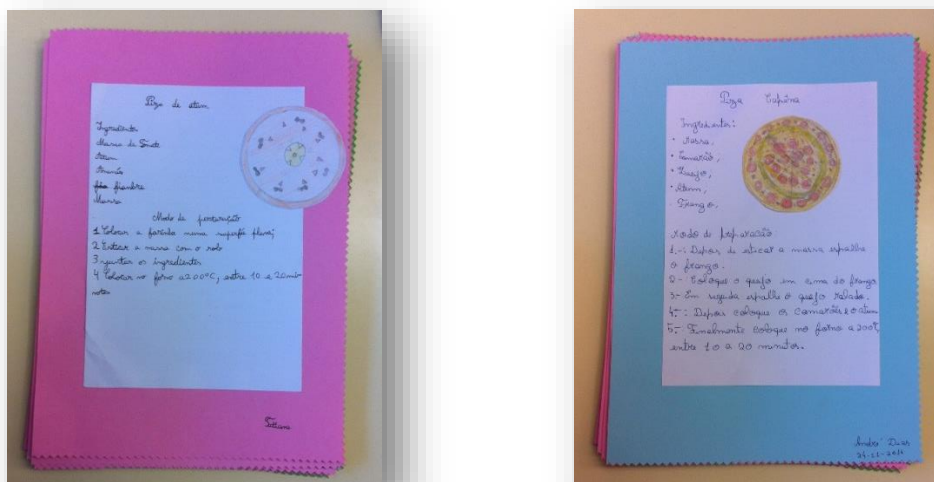 Pizza de atum
Ingredientes
Massa de
Atum
Ananás
fiambre
Massa
Modo de
1 Colocar a farinha numa superfí plana;
2 Esticar a massa com o rolo
3 juntar os ingredientes
4 Colocar no forno a 200°C, entre 10 a 20 min
notos
Tatiana
Pizza
Ingredientes:
• Massa,
• Camarão,
• Queijo,
• Atum,
Frango.
Modo de preparação
1-: Depois de esticar a massa espalhe
o frango.
2- Coloque o queijo em cima do frango
3- Em seguida espalhe o queijo ralado.
4-: Depois coloque os camarões e o atum
5- Finalmente coloque no forno a 200°,
entre 10 a 20 minutos.
André Dias